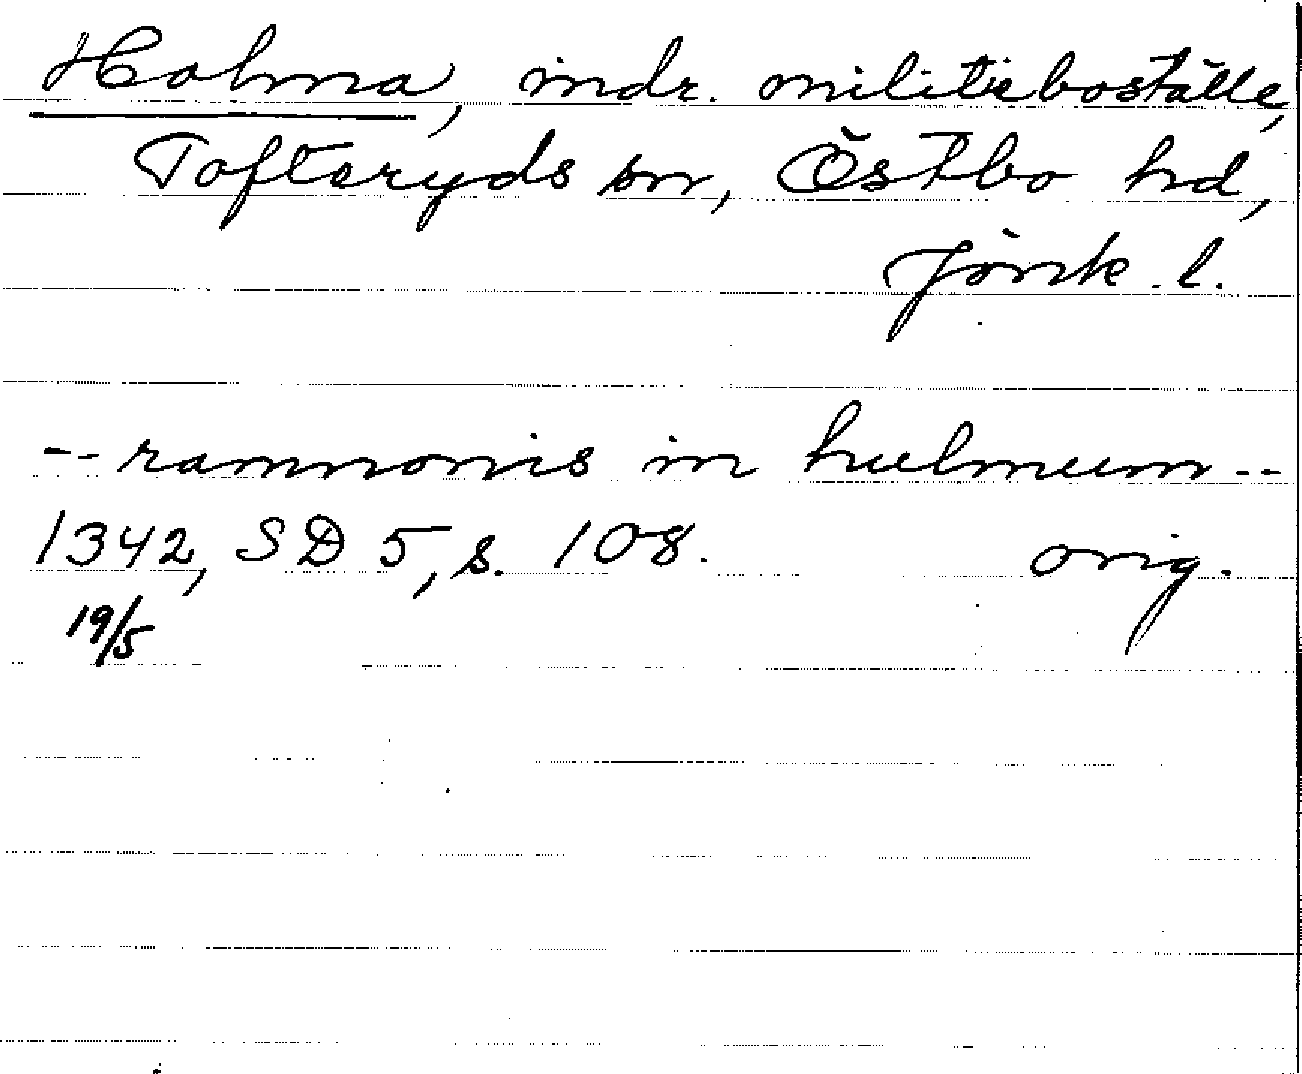 Holma, indr. militieboställe,
Tofteryds sn, Östbo hd,
Jönk. l.
-- ramnonis in hulmum --
1342, SD 5, s. 108. orig.
19/5